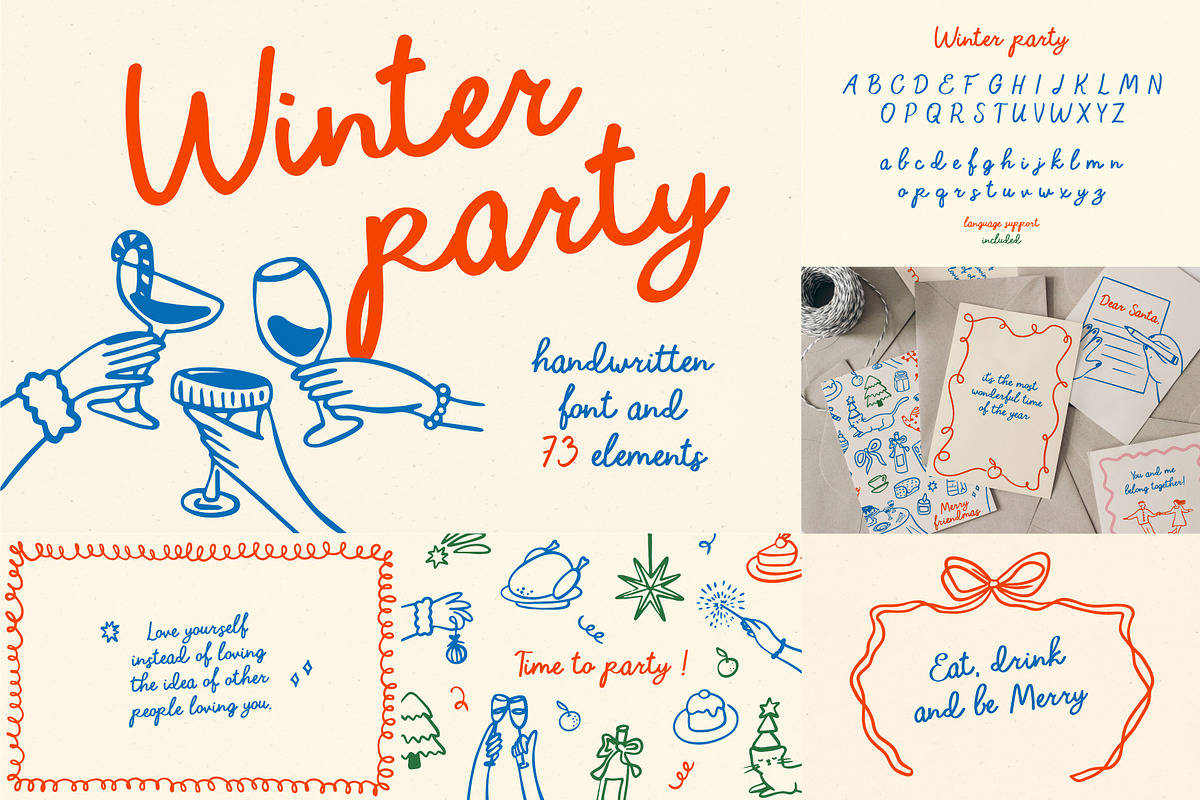 Winter
party
handwritten
font and
73 elements
Winter party
A B C D E F G H I J K L M N
O P Q R S T U V W X Y Z
a b c d e f g h i j k l m n
o p q r s t u v w x y z
language support
included
Dear Santa,
it's the most
wonderful time
of the year
You and me
belong together!
Merry
friendmas
Love yourself
instead of loving
the idea of other
people loving you.
Time to party !
Eat, drink
and be Merry